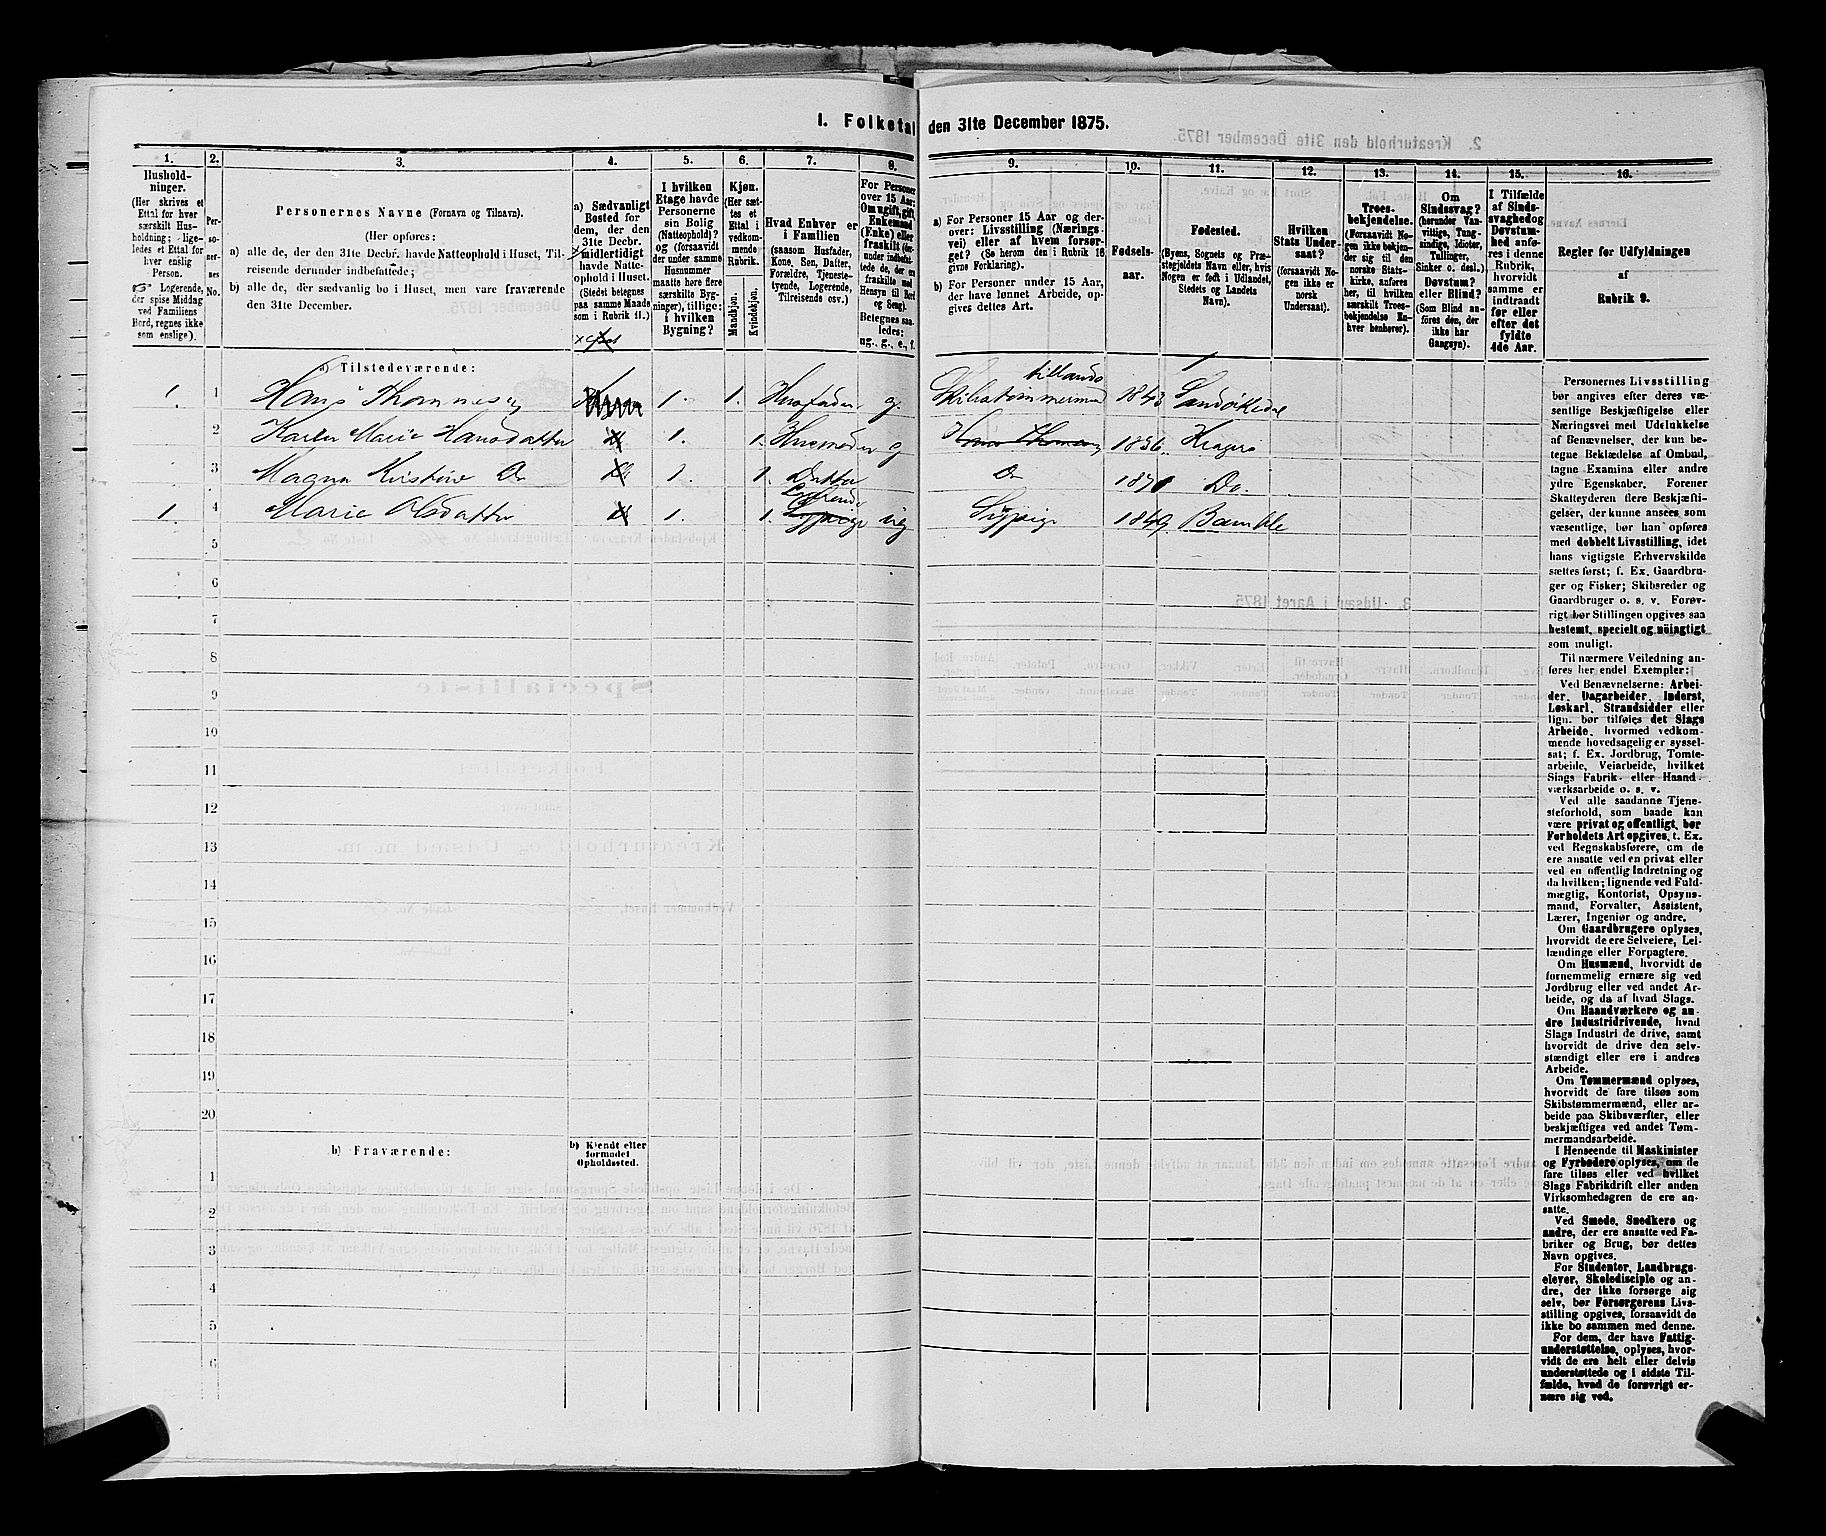 I. Folketal den 31te December 1875.
1. 2. 3. 4. 5. 6. 7. 8. 9. 10. 11. 12. 13. 14. 15. 16.
Hushold-
ninger.
(Her skrives et
Ettal for hver
særskilt Hus-
holdning; lige-
ledes et Ettal for
hver enslig
Person.
Logerende,
der spise Middag
ved Familiens
Bord, regnes ikke
som enslige).
Per-
so-
ner-
nes
No.
Personernes Navne (Fornavn og Tilnavn).
(Her opføres:
a) alle de, der den 31te Decbr. havde Natteophold i Huset, Til-
reisende derunder indbefattede;
b) alle de, der sædvanlig bo i Huset, men vare fraværende
den 31te December.
a) Sædvanligt
Bosted for
dem, der den
31te Decbr.
midlertidigt
havde Natte-
ophold i Huset.
(Stedet betegnes
paa samme Maade
som i Rubrik 11.)
I hvilken
Etage havde
Personerne
sin Bolig
(Natteophold)?
og (forsaavidt
der under samme
Husnummer
maatte høre flere
særskilte Byg-
ninger), tillige:
i hvilken
Bygning?
Kjøn.
(Her sæt-
tes et
Ettal i
vedkom-
mende
Rubrik.
Mandkjøn.
Kvindekjøn.
Hvad Enhver er
i Familien
(saasom Husfader,
Kone, Søn, Datter,
Forældre, Tjeneste-
tyende, Logerende,
Tilreisende osv.)
For Personer
over 15 Aar:
Om ugift, gift,
Enkemand
(Enke) eller
fraskilt (der-
under indbefat-
tede de, der ere
fraskilte med
Hensyn til Bord
og Seng).
Betegnes saa-
ledes:
ug., g., e., f.
a) For Personer 15 Aar og der-
over: Livsstilling (Nærings-
vei) eller af hvem forsør-
get? (Se herom den i Rubrik 16
givne Forklaring).
b) For Personer under 15 Aar,
der have lønnet Arbeide, op-
gives dettes Art.
Fødsels-
aar.
Fødested.
(Byens, Sognets og Præ-
stegjeldets Navn eller, hvis
Nogen er født i Udlandet,
Stedets og Landets
Navn).
Hvilken
Stats Under-
saat?
(forsaavidt No-
gen ikke er
norsk
Undersaat).
Troes-
bekjendelse.
(Forsaavidt No-
gen ikke bekjen-
der sig til den
norske Stats-
kirke, anføres
her, til hvilken
særskilt Troes-
bekjendelse En-
hver henhører).
Om
Sindssvag?
(herunder Van-
vittige, Tung-
sindige, Idioter,
Tullinger,
Sinker o. desl.)
Døvstum?
eller Blind?
(Som Blind an-
føres den, der
ikke har
Gangsyn).
I Tilfælde
af Sinds-
svaghed og
Døvstum-
hed anfø-
res i denne
Rubrik,
hvorvidt
samme er
indtraadt
før eller
efter det
fyldte
4de Aar.
Regler for Udfyldningen
af
Rubrik 9.
a) Tilstedeværende:
1. 1 Hans Thommesen 1. 1. Husfader g. Skibstømmermand tillands 1843 Sandøkedal
2 Karen Marie Hansdatter 1. 1. Husmoder g Hans Thomesen 1836 Kragerø
3 Magna Kirstine Do 1. 1. Datter Do 1871 Do.
1. 4 Marie Olsdatter 1. 1. Logerende ug Sypige 1849 Bamble
5
6
7
8
9
10
11
12
13
14
15
16
17
18
19
20
b) Fraværende:
b) Kjendt eller
formodet
Opholdssted.
1
2
3
4
5
6
Personernes Livsstilling
bør angives efter deres væ-
sentlige Beskjæftigelse eller
Næringsvei med Udelukkelse
af Benævnelser, der kun be-
tegne Beklædelse af Ombud,
tagne Examina eller andre
ydre Egenskaber. Forener
Skatteyderen flere Beskjæfti-
gelser, der kunne ansees som
væsentlige, bør han opføres
med dobbelt Livsstilling, idet
hans vigtigste Erhvervskilde
sættes først; f. Ex. Gaardbru-
ger og Fisker; Skibsreder og
Gaardbruger o. s. v. Forøv-
rigt bør Stillingen opgives saa
bestemt, specielt og nöiagtigt
som muligt.
Til nærmere Veiledning an-
føres her endel Exempler:
Ved Benævnelserne: Arbei-
der, Dagarbeider, Inderst,
Løskarl, Strandsidder eller
lign. bør tilføies det Slags
Arbeide, hvormed vedkom-
mende hovedsagelig er syssel-
sat; f. Ex. Jordbrug, Tomte-
arbeide, Veiarbeide, hvilket
Slags Fabrik- eller Haand-
værksarbeide o. s. v.
Ved alle saadanne Tjene-
steforhold, som baade kan
være privat og offentligt, bør
Forholdets Art opgives, t. Ex.
ved Regnskabsførere, om de
ere ansatte ved en privat eller
ved en offentlig Indretning og
da hvilken; lignende ved Fuld-
mægtig, Kontorist, Opsyns-
mand, Forvalter, Assistent,
Lærer, Ingeniør og andre.
Om Gaardbrugere oplyses,
hvorvidt de ere Selveiere, Lei-
lændinge eller Forpagtere.
Om Husmænd, hvorvidt de
fornemmelig ernære sig ved
Jordbrug eller ved andet Ar-
beide, og da af hvad Slags.
Om Haandværkere og an-
dre Industridrivende, hvad
Slags Industri de drive, samt
hvorvidt de drive den selv-
stændigt eller ere i andres
Arbeide.
Om Tømmermænd oplyses,
hvorvidt de fare tilsøs som
Skibstømmermænd, eller ar-
beide paa Skibsværfter, eller
beskjæftiges ved andet Tøm-
mermandsarbeide.
I Henseende til Maskinister
og Fyrbødere oplyses, om de
fare tilsøs eller ved hvilket
Slags Fabrikdrift eller anden
Virksomhedsgren de ere an-
satte.
Ved Smede, Snedkere og
andre, der ere ansatte ved Fa-
briker og Brug, bør dettes
Navn opgives.
For Studenter, Landbrugs-
elever, Skoledisciple og an-
dre, der ikke forsørge sig
selv, bør Forsørgerens Livs-
stilling opgives, forsaavidt de
ikke bo sammen med denne.
For dem, der have Fattig-
understøttelse, oplyses, hvor-
vidt de ere helt eller delvis
understøttede og i sidste Til-
fælde, hvad de forøvrigt er-
nære sig ved.